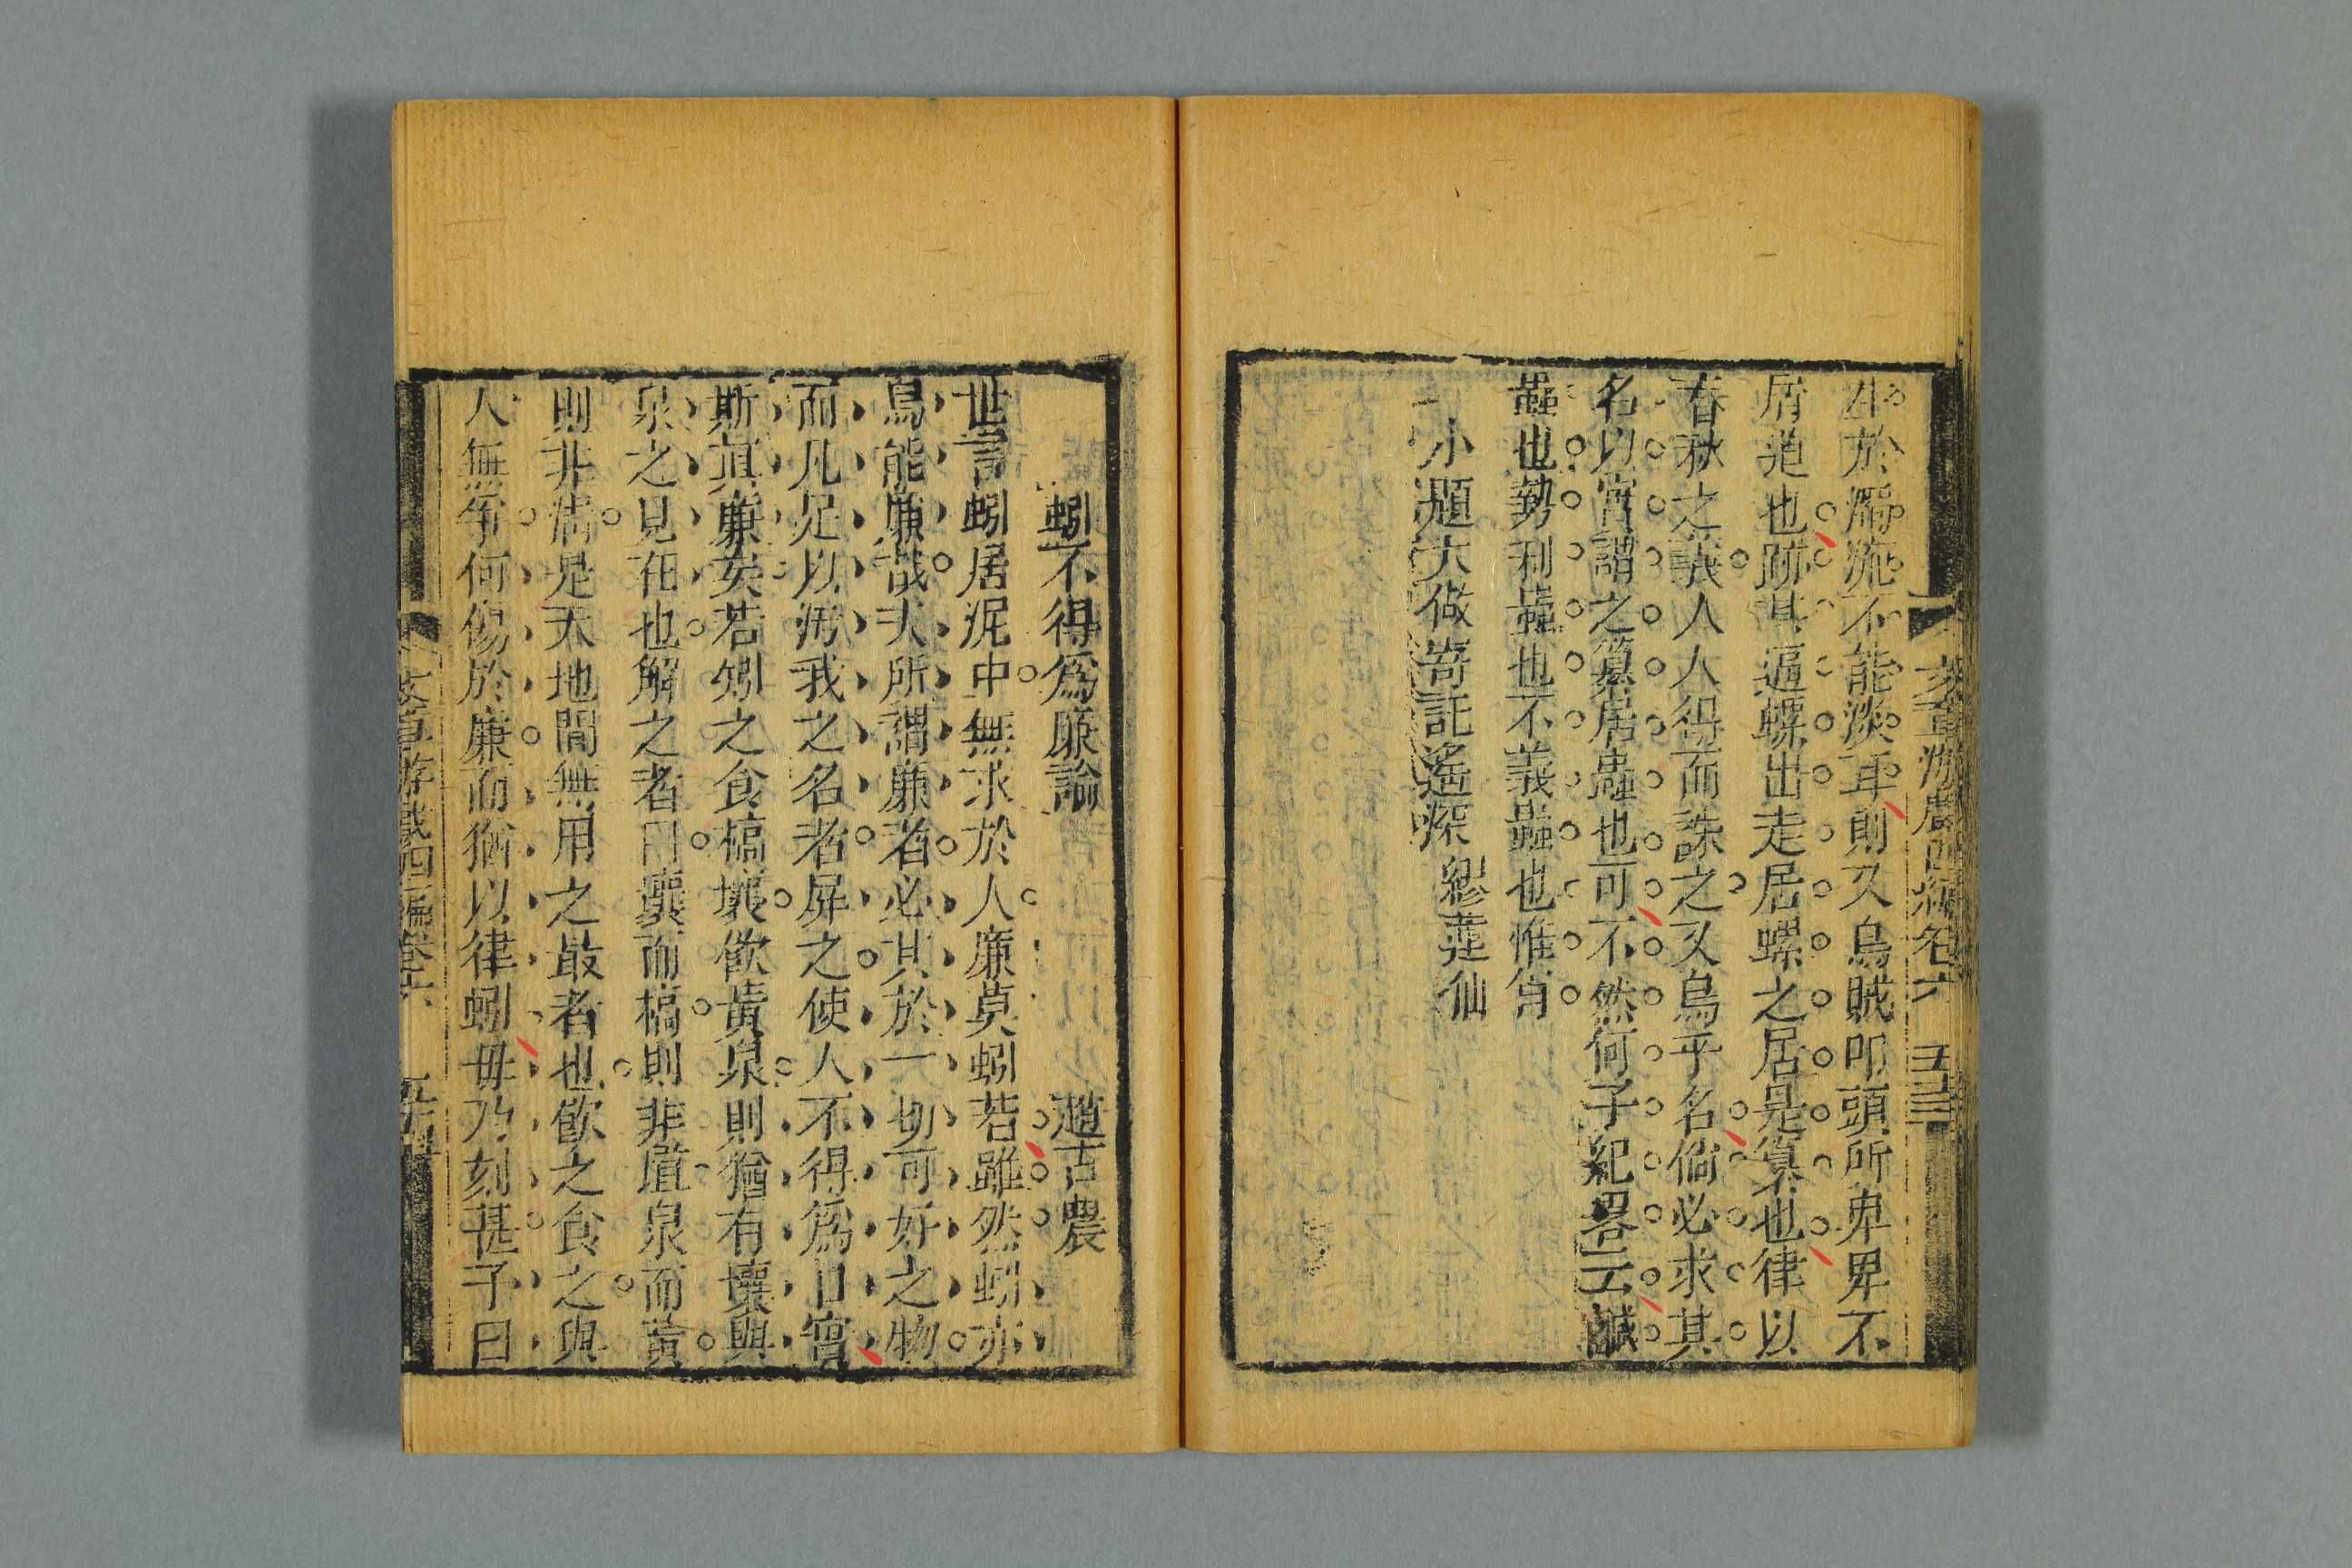 文章游戲四編卷六 五十三
生於濁流不能淡耳則又烏賊叩頭所卑卑不
屑道也跡其逼螺出走居螺之居是篡也律以
春秋之義人人得而誅之又烏乎名倘必求其
名以實謂之篡居蟲也可不然何子紀畧云鹹
蟲也勢利蟲也不義蟲也惟肖
小題大做寄託遙深 繆蓮仙
蚓不得爲廉論 趙古農
世言蚓居泥中無求於人廉莫蚓若雖然蚓亦
烏能廉哉夫所謂廉者必其於一切可好之物
而凡足以汚我之名者屏之使人不得爲口實
斯眞廉矣若蚓之食槁壤飲黃泉則猶有壤與
泉之見在也解之者曰壤而槁則非壇泉而黃
則非淸是天地間無用之最者也飲之食之與
人無爭何傷於廉而猶以律蚓毋乃刻甚予曰
文章游戲四編卷六